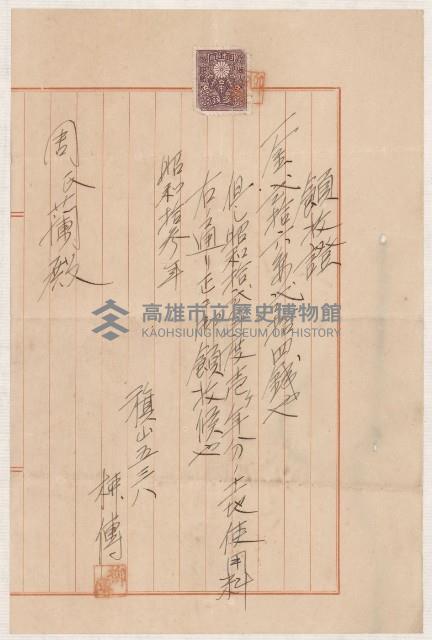 領收證
一金弐拾六円弐拾四錢也
但し昭和拾弐年度壱ヶ年分ノ土地使用料
右ノ通リ正ニ領收候也
昭和拾参年
旗山五三八
棟傳
周氏蘭殿
高雄市立歷史博物館
KAOHSIUNG MUSEUM OF HISTORY